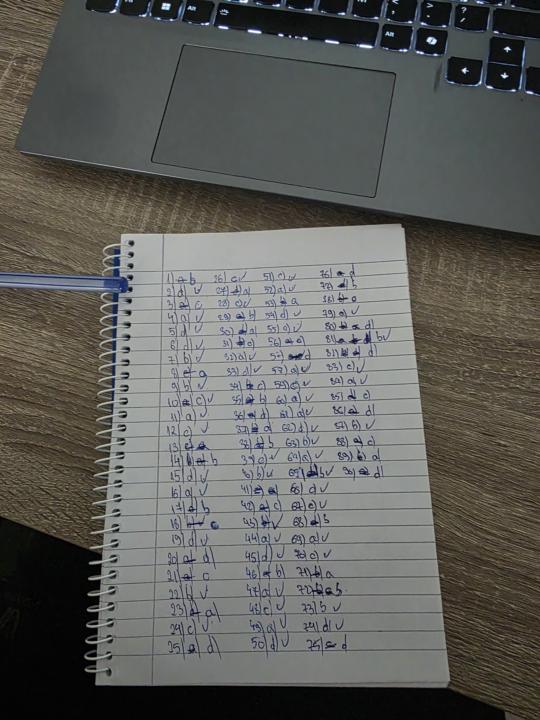 1) b 26) c ✓ 51) c ✓ 76) d
2) d ✓ 27) a 52) a ✓ 77) b
3) c 28) c ✓ 53) a
4) a ✓ 54) d ✓ 79) a ✓
5) d ✓ 55) c ✓ 80) d
6) d ✓ 31) c 81) b ✓
7) b ✓ 32) a ✓ 57) d d
8) a 33) d ✓ 58) a ✓ 83) c ✓
9) b ✓ 34) c 59) c ✓ 84) a ✓
10) c ✓ 35) b 60) a ✓ 85) c
11) a ✓ 36) d 61) a ✓ 86) d
12) c ✓ 37) a 62) d ✓ 87) b ✓
13) 38) b 63) b ✓ 88) c
14) b 39) c ✓ 89) d
15) d ✓ 40) b ✓ b ✓ 90) d
16) a ✓ 41) d ✓
17) b 42) c 67) c ✓
18) 43) ✓ 68) b
19) d ✓ 44) a ✓ 69) a ✓
20) d 45) d ✓ 70) c ✓
21) c 46) b 71) a
22) b ✓ 47) a ✓ 72) b
23) a 48) c ✓ 73) b ✓
24) c ✓ 49) a ✓ 74) d ✓
25) d 50) d ✓ 75) d